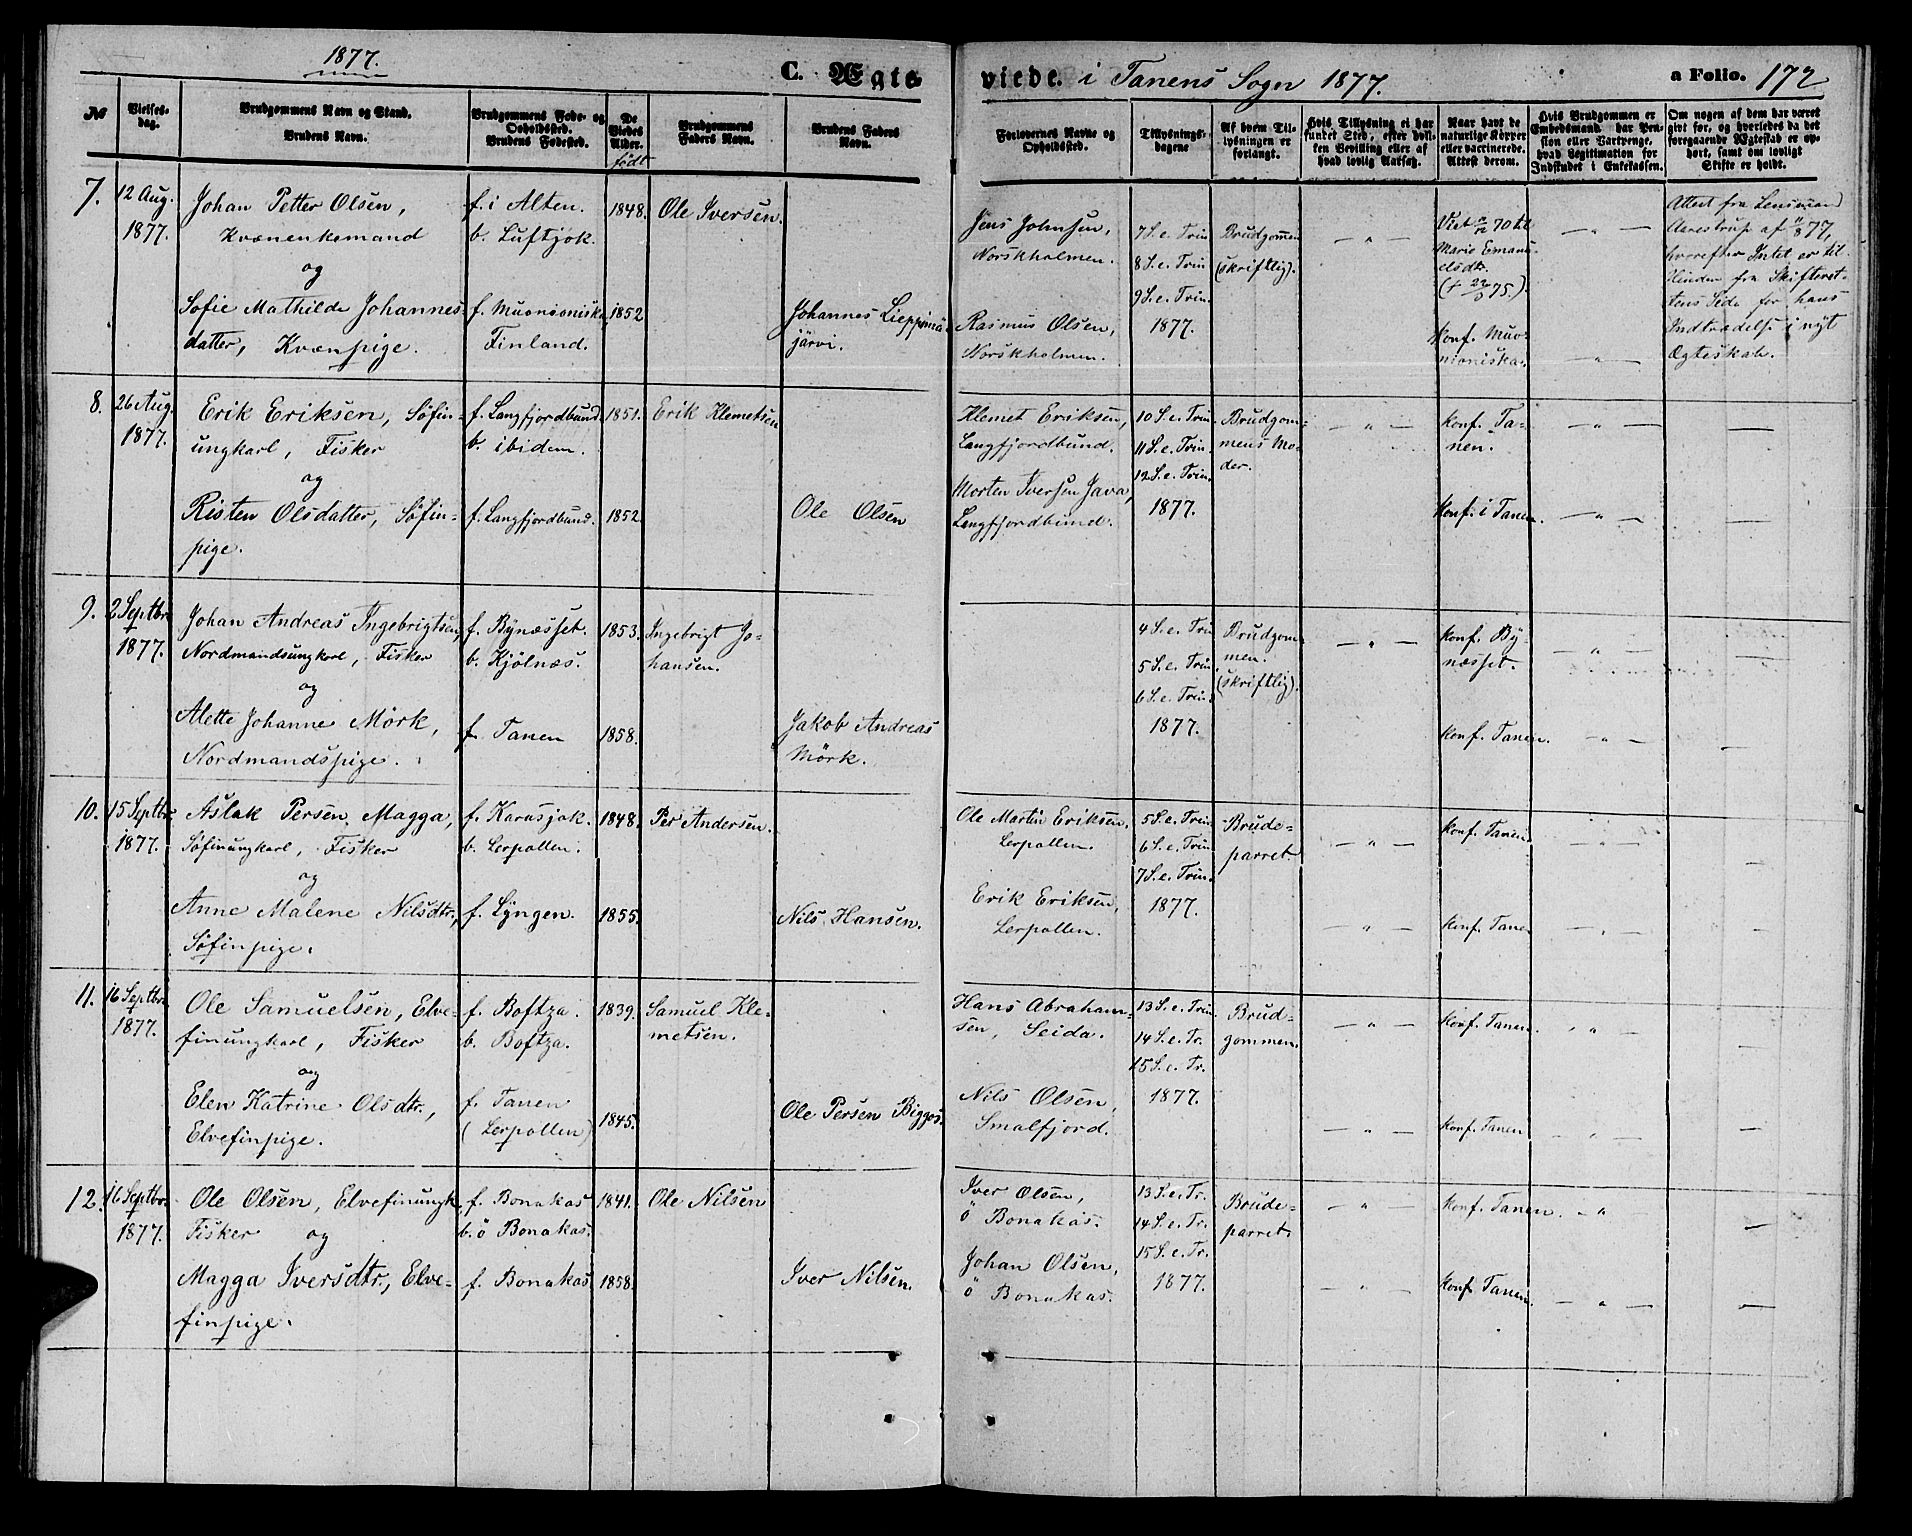 1877.
C. Ægte
№
Vielses-
dag.
Brudgommens Navn og Stand.
Brudens Navn.
Brudgommens Føde- og
Opholdssted.
Brudens Fødested.
De
Viedes
Alder.
født
Brudgommens
Faders Navn.
Brudens Faders
Navn.
7.
12 Aug.
1877.
Johan Petter Olsen,
Kvænenkemand
og
Sofie Mathilde Johannes-
datter, Kvænpige.
f. i Alten.
b. Luftjok.
f. Muonioniska
Finland.
1848.
1852
Ole Iversen.
Johannes Lieppimä
järvi.
8.
26 Aug.
1877.
Erik Eriksen, Søfin-
ungkarl, Fisker
og
Risten Olsdatter, Søfin-
pige.
f. Langfjordbund.
b. ibidem.
f. Langfjordbund.
1851.
1852.
Erik Klemetsen
Ole Olsen
9.
2 Septbr.
1877.
Johan Andreas Ingebrigtsen,
Nordmandsungkarl, Fisker
og
Alette Johanne Mörk,
Nordmandspige.
f. Bynæsset.
b. Kjölnæs.
f. Tanen
1853.
1858.
Ingebrigt Jo-
hansen.
Jakob Andreas
Mörk.
10.
15 Septbr.
1877.
Aslak Persen Magga,
Søfinungkarl, Fisker
og
Anne Malene Nilsdtr.,
Søfinpige.
f. Karasjok.
b. Lerpollen.
f. Lyngen.
1848.
1855.
Per Andersen.
Nils Hansen.
11.
16 Septbr.
1877.
Ole Samuelsen, Elve-
finungkarl, Fisker
og
Elen Katrine Olsdtr.,
Elvefinpige.
f. Boftza.
b. Boftza.
f. Tanen
(Lerpollen)
1839.
1845.
Samuel Kle-
metsen.
Ole Persen Biggos.
12.
16 Septbr.
1877.
Ole Olsen, Elvefinungk.
Fisker og
Magga Iversdtr., Elve-
finpige.
f. Bonakas
b. ö Bonakas.
f. Bonakas
1841.
1858.
Ole Nilsen
Iver Nilsen.
viede. i Tanens Sogn 1877.
a Folio. 172
Forlovernes Navne og
Opholdssted.
Tillysnings-
dagene
Af hvem Til-
lysningen er
forlangt.
Hvis Tillysning ei har
fundet Sted, efter hvil-
ken Bevilling eller af
hvad lovlig Aarsag.
Naar havt de
naturlige Kopper
eller vaccinerede.
Attest derom.
Hvis Brudgommen er
Embedsmand har Pen-
sion eller Vartpenge,
hvad Legitimation for
Indskudet i Enkekassen.
Om nogen af dem har været
gift før, og hvorledes da det
foregaaende Ægteskab er op-
hørt, samt om lovligt
Skifte er holdt.
Jens Johnsen,
Norskholmen.
Rasmus Olsen,
Norskholmen.
7 S. e. Trin
8 S. e. Trin
9 S. e. Trin.
1877.
Brudgommen
(skriftlig).
— " —
Marie Emanu-
elsdtr.
konf. Muo-
nioniska.
— " —
— " —
Attest fra Lensmand
Aarestrup af
hvorefter Intet er til
Hinder fra Skifteret-
tens Side for hans
Indtrædelse i nyt
Ægteskab.
Klemet Eriksen,
Langfjordbund.
Morten Iversen Java,
Langfjordbund.
10 S. e. Trin.
11 S. e. Trin.
12 S. e. Trin.
1877.
Brudgom-
mens Mo-
der.
— " —
konf. Ta-
nen.
Konf. i Tanen.
— " —
— " —
—
—
4 S. e. Trin
5 S. e. Trin.
6 S. e. Trin.
1877.
Brudgom-
men.
(skriftlig).
— " —
konf. By-
næsset.
konf. Tanen.
— " —
— " —
—
—
Ole Martin Eriksen.
Lerpollen.
Erik Eriksen,
Lerpollen.
5 S. e. Trin
6 S. e. Trin
7 S. e. Trin.
1877.
Brude-
parret.
— " —
— " —
konf. Tanen.
konf. Tanen
— " —
— " —
—
—
Hans Abraham-
sen, Seida.
Nils Olsen,
Smalfjord.
13 S. e. Trin.
14 S. e. Tr.
15 S. e. Tr.
1877.
Brud-
gommen.
— " —
— " —
konf. Tanen.
konf. Tanen
— " —
— " —
—
—
Iver Olsen,
ö Bonakas.
Johan Olsen,
ö Bonakas.
13 S. e. Tr.
14 S. e. Tr.
15 S. e. Tr.
1877.
Brude-
parret.
— " —
— " —
konf. Tanen.
konf. Tanen.
— " —
— " —
—
—